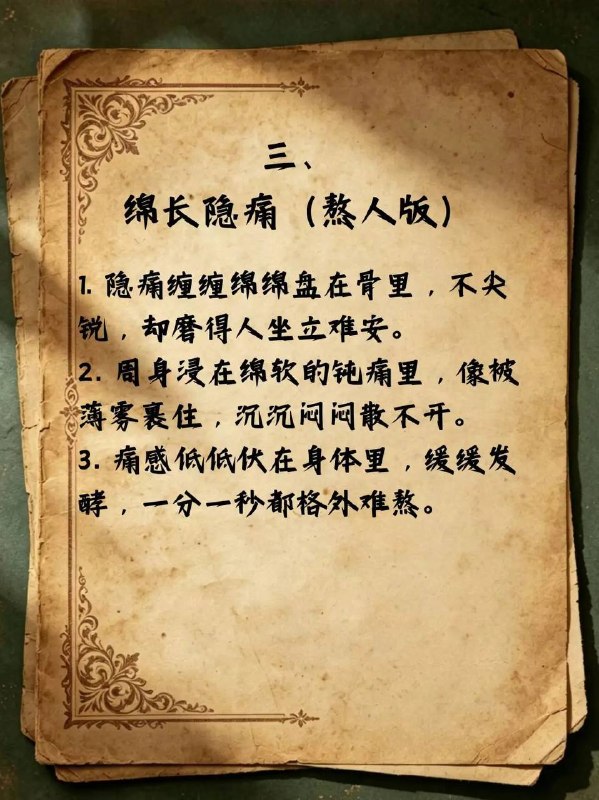 三、
绵长隐痛（熬人版）
1. 隐痛缠缠绵绵盘在骨里，不尖
锐，却磨得人坐立难安。
2. 周身浸在绵软的钝痛里，像被
薄雾裹住，沉沉闷闷散不开。
3. 痛感低低伏在身体里，缓缓发
酵，一分一秒都格外难熬。